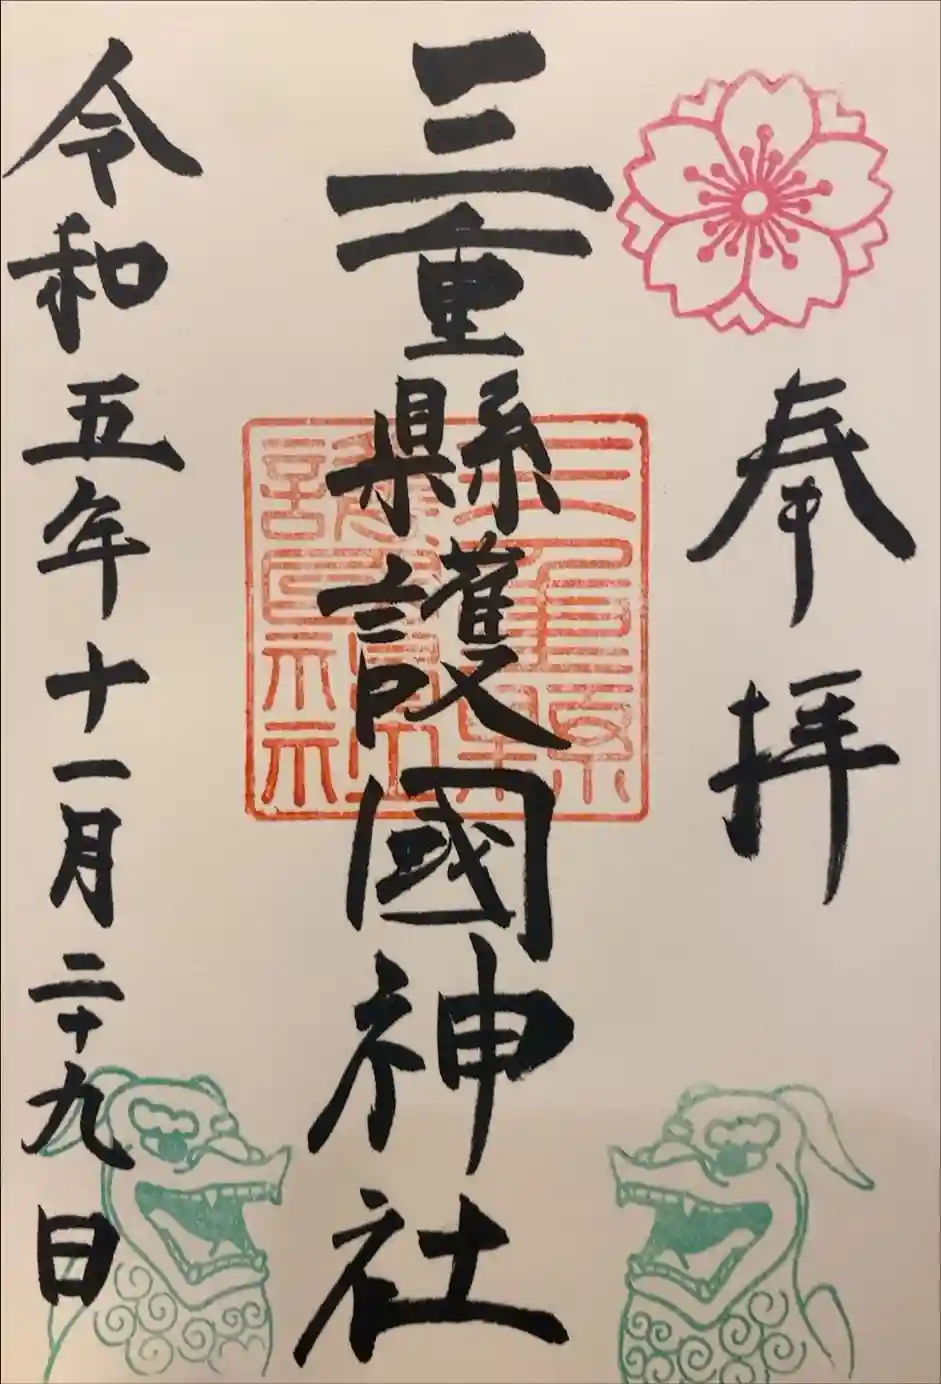 奉拝
三重縣護國神社
三重縣護國神社
令和五年十一月二十九日